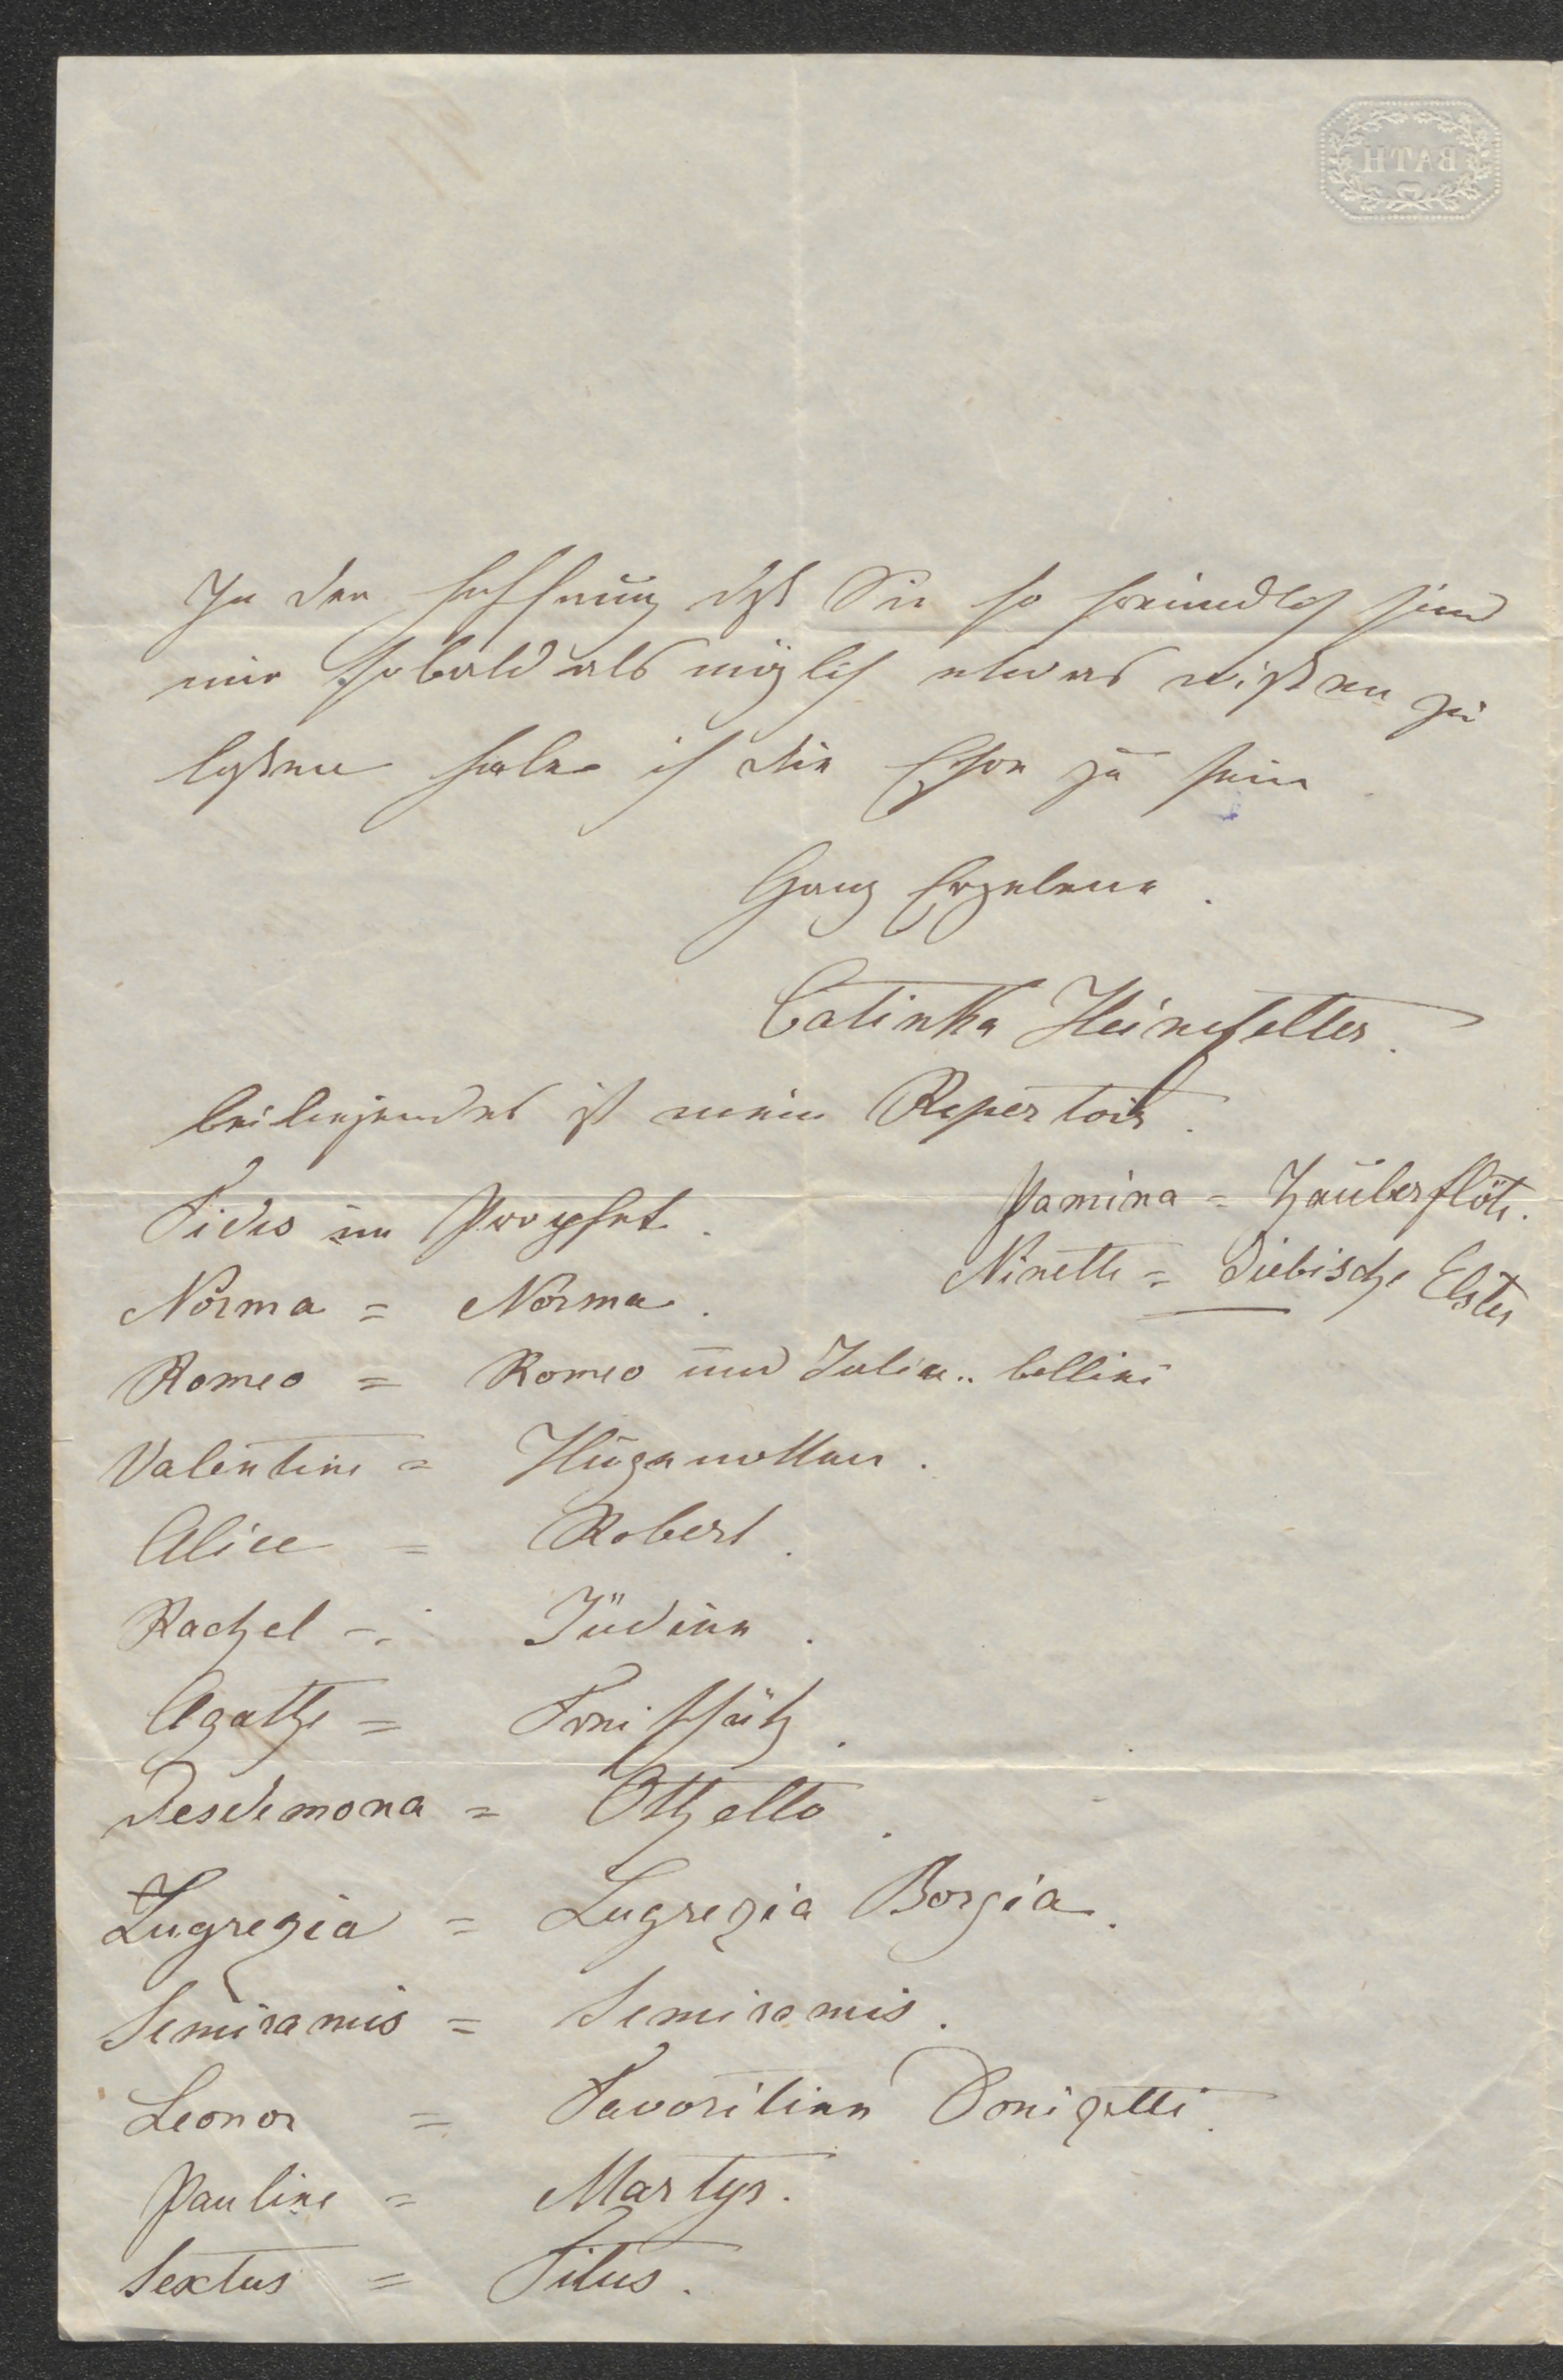 BATH
In der Hoffnung daß Sie so freundlich sind
mir sobald als möglich etwas wißen zu
laßen habe ich die Ehre zu sein
Ganz Ergebene.
Catinka Heinefetter.
beiliegendes ist mein Repertoir.
Fides im Prophet.
Norma = Norma.
Romeo = Romeo und Julia.. bellini
Valentine = Hugenotten.
Alice = Robert.
Rachel = Jüdinn.
Agathe = Freischütz.
Desdemona = Othello.
Lugrezia = Lugrezia Borgia.
Semiramis = Semiramis.
Leonor = Favoritinn Donizetti.
Pauline = Martyr.
Sextus = Titus.
Pamina = Zauberflöte.
Ninette = Diebische Elster